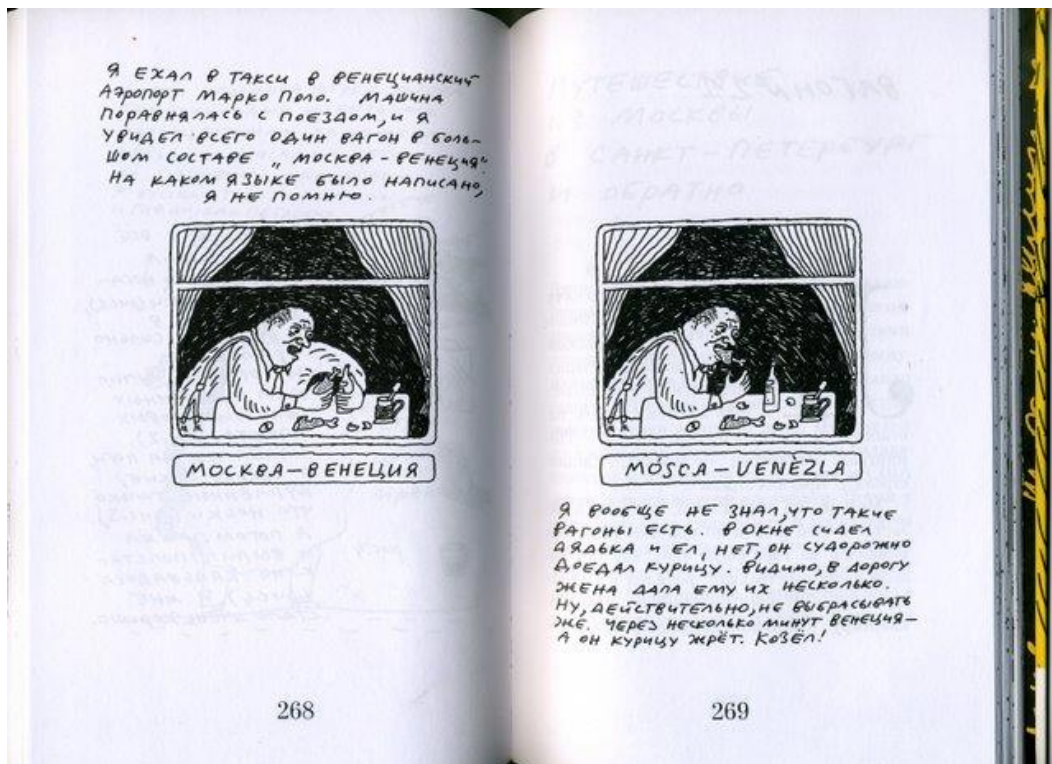 Я ЕХАЛ В ТАКСИ В ВЕНЕЦИАНСКИЙ
АЭРОПОРТ МАРКО ПОЛО. МАШИНА
ПОРАВНЯЛАСЬ С ПОЕЗДОМ, И Я
УВИДЕЛ ВСЕГО ОДИН ВАГОН В БОЛЬ-
ШОМ СОСТАВЕ „МОСКВА – ВЕНЕЦИЯ".
НА КАКОМ ЯЗЫКЕ БЫЛО НАПИСАНО,
Я НЕ ПОМНЮ.
МОСКВА – ВЕНЕЦИЯ
268
ПУТЕШЕСТВИЕ
ИЗ МОСКВЫ
В САНКТ-ПЕТЕРБУРГ
И ОБРАТНО
MÒSCA – VENÈZIA
Я ВООБЩЕ НЕ ЗНАЛ, ЧТО ТАКИЕ
ВАГОНЫ ЕСТЬ. В ОКНЕ СИДЕЛ
ДЯДЬКА И ЕЛ, НЕТ, ОН СУДОРОЖНО
ДОЕДАЛ КУРИЦУ. ВИДИМО, В ДОРОГУ
ЖЕНА ДАЛА ЕМУ ИХ НЕСКОЛЬКО.
НУ, ДЕЙСТВИТЕЛЬНО, НЕ ВЫБРАСЫВАТЬ
ЖЕ. ЧЕРЕЗ НЕСКОЛЬКО МИНУТ ВЕНЕЦИЯ –
А ОН КУРИЦУ ЖРЁТ. КОЗЁЛ!
269